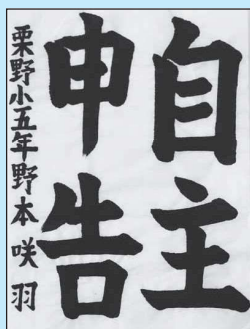 自主
申告
栗野小五年野本咲羽